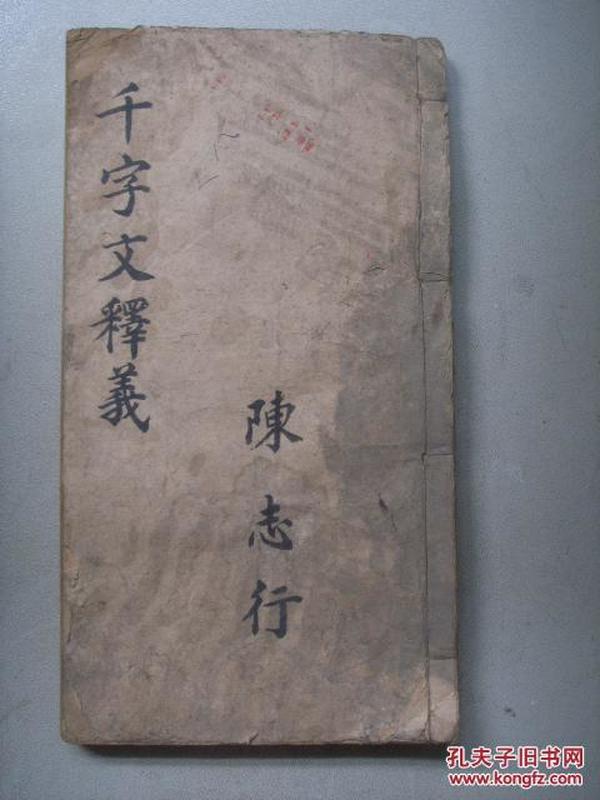 千字文釋義
陳志行
孔夫子旧书网
www.kongfz.com